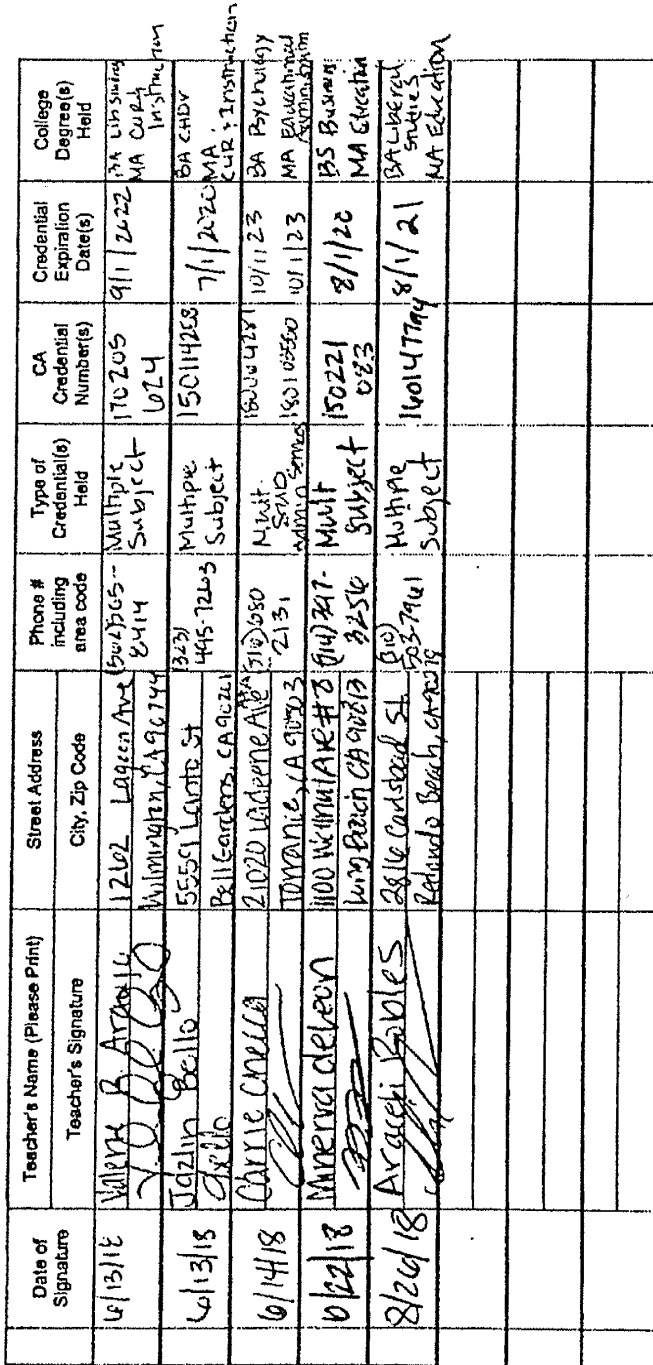 Date of Signature
Teacher's Name (Please Print)
Teacher's Signature
Street Address
City, Zip Code
Phone # including area code
Type of Credential(s) Held
CA Credential Number(s)
Credential Expiration Date(s)
College Degree(s) Held
6/13/18
Valerie B.
1262 Lagoon Ave
Wilmington, CA 90744
8414
Multiple Subject
170205
624
9/1/2022
MA Curr
Instruction
6/13/18
Jazlin Bello
Bello
St
Bell Gardens, CA 90201
(323)
495-7263
Multiple Subject
7/1/2020
BA CHDV
MA
Cur: Instruction
6/14/18
Carrie
21020
Torrance, CA 90503
(310) 680
2131
Mult.
Sub
Admin Services
10/1/23
10/1/23
BA Psychology
MA Educational
Administration
6/22/18
Minerva deLeon
1100 Walnut Ave #8
Long Beach CA 90813
3256
Mult
Subject
150221
083
8/1/20
BS Business
MA Education
8/26/18
Araceli Robles
2816 Carlsbad St.
Redondo Beach, CA
(310)
503-7961
Multiple
Subject
8/1/21
BA Liberal
Studies
MA Education